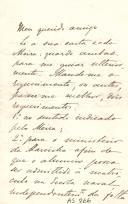 Meu querido amigo
Li a sua carta e do
Meira; quando andas
para me guiar ulterior
mente. Mande-me o
requerimento, ou antes,
parece-me melhor, dois
requerimentos:
1º no sentido indicado
pelo Meira;
2º para o ministerio
da Marinha afim de
que o alumno possa
ser admittido á matri
cula na Escola naval
independente da falta
AS 266